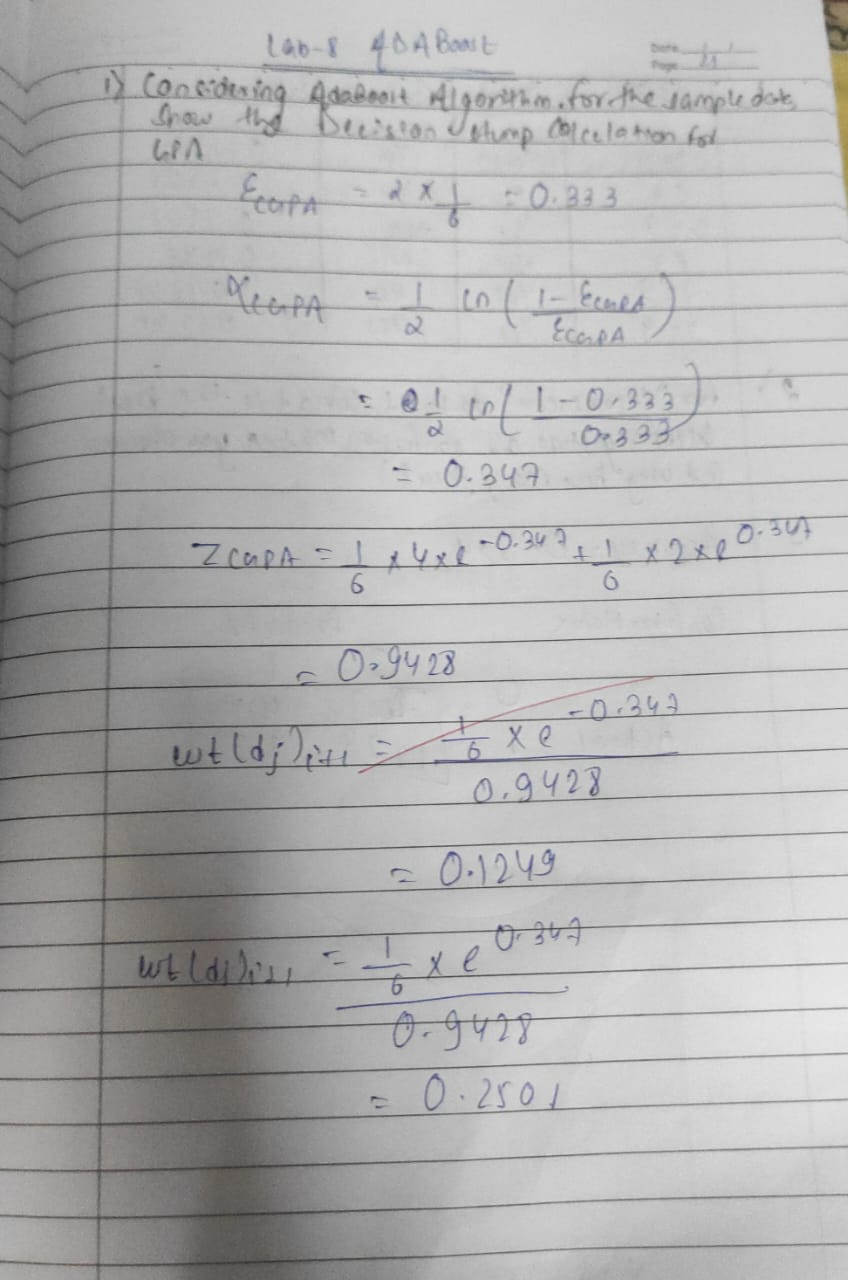 Lab-8 ADABoost
Date / /
Page 21
1) Considering AdaBoost Algorithm, for the sample data,
Show the Decision stump calculation for
GPA
ε_CGPA = 2 × 1/6 = 0.333
α_CGPA = 1/2 ln( (1 - ε_CGPA) / ε_CGPA )
= 1/2 ln( (1-0.333) / 0.333 )
= 0.347
Z CGPA = 1/6 × 4 × e^-0.347 + 1/6 × 2 × e^0.347
= 0.9428
wt(dj)i+1 = (1/6 × e^-0.347) / 0.9428
= 0.1249
wt(dj)i+1 = (1/6 × e^0.347) / 0.9428
= 0.2501